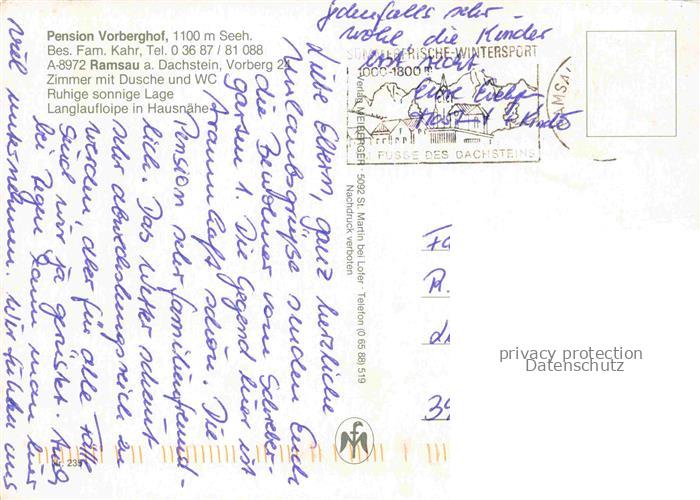 Pension Vorberghof, 1100 m Seeh.
Bes. Fam. Kahr, Tel. 0 36 87 / 81 088
A-8972 Ramsau a. Dachstein, Vorberg 24
Zimmer mit Dusche und WC
Ruhige sonnige Lage
Langlaufloipe in Hausnähe
Liebe Eltern, ganz herzliche
Urlaubsgrüße senden Euch
die Bewohner vom Schreber-
garten 1. Die Gegend hier ist
traumhaft schön. Die
Pension sehr familienfreund-
lich. Das Wetter scheint
sehr abwechslungsreich zu
werden, aber für alle Fälle
sind wir ja gerüstet. Auch
bei Regen kann man hier
viel unternehmen. Wir fühlen uns
jedenfalls sehr
wohl, die Kinder
erst recht
Eure
Kinder
SOMMERFRISCHE-WINTERSPORT
1000-1800 m
AM FUSSE DES DACHSTEINS
RAMSAU
Verlag MEIBERGER · 5092 St. Martin bei Lofer · Telefon (0 65 88) 519
Nachdruck verboten
Nr. 235
privacy protection
Datenschutz